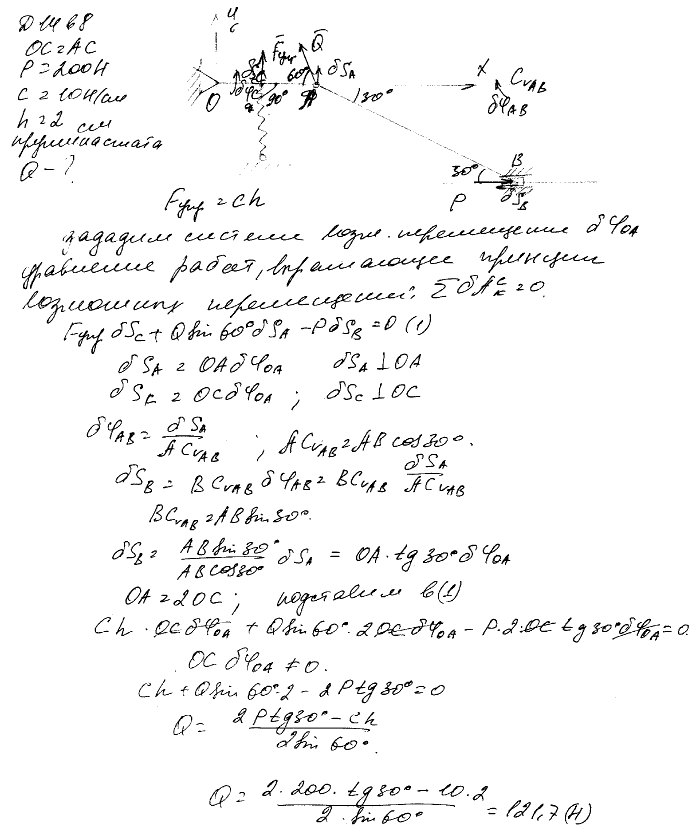 Д 14 68
OC = AC
P = 200Н
C = 10Н/см
h = 2 см
пружина сжата
Q - ?
y
c
F̄упр
Q̄
δSA
δSC
δφ
60°
90°
O
C
A
30°
X
CVAB
δφAB
30°
B
P̄
δSB
Fупр = ch
зададим системе возм. перемещение δφOA
уравнение работ, выражающее принцип
возможных перемещений: ΣδAкᵉ = 0.
Fупр δSC + Q sin 60° δSA − P δSB = 0 (1)
δSA = OA δφOA    δSA ⊥ OA
δSC = OC δφOA ;  δSC ⊥ OC
δφAB = δSA / ACVAB ; ACVAB = AB cos 30°.
δSB = BCVAB δφAB = BCVAB δSA / ACVAB
BCVAB = AB sin 30°.
δSB = AB sin 30° / AB cos 30° δSA = OA · tg 30° δφOA
OA = 2OC ;  подставим в (1)
Ch · OC δφOA + Q sin 60° · 2 OC δφOA − P · 2 · OC tg 30° δφOA = 0.
OC δφOA ≠ 0.
Ch + Q sin 60° · 2 − 2 P tg 30° = 0
Q = 2 P tg 30° − Ch / 2 sin 60°.
Q = 2 · 200 · tg 30° − 10 · 2 / 2 · sin 60° = 121,7 (Н)